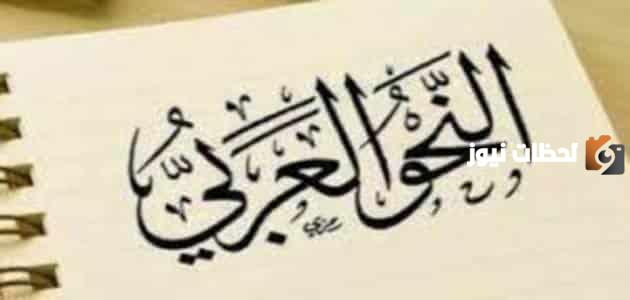 النَّحْوُ الْعَرَبِيُّ
لحظات نيوز